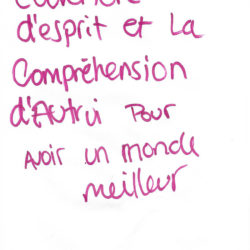 d'esprit et la
Compréhension
d'Autrui Pour
Avoir un monde
meilleur